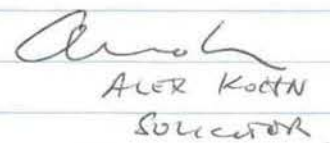 ALEX KOHN
SOLICITOR